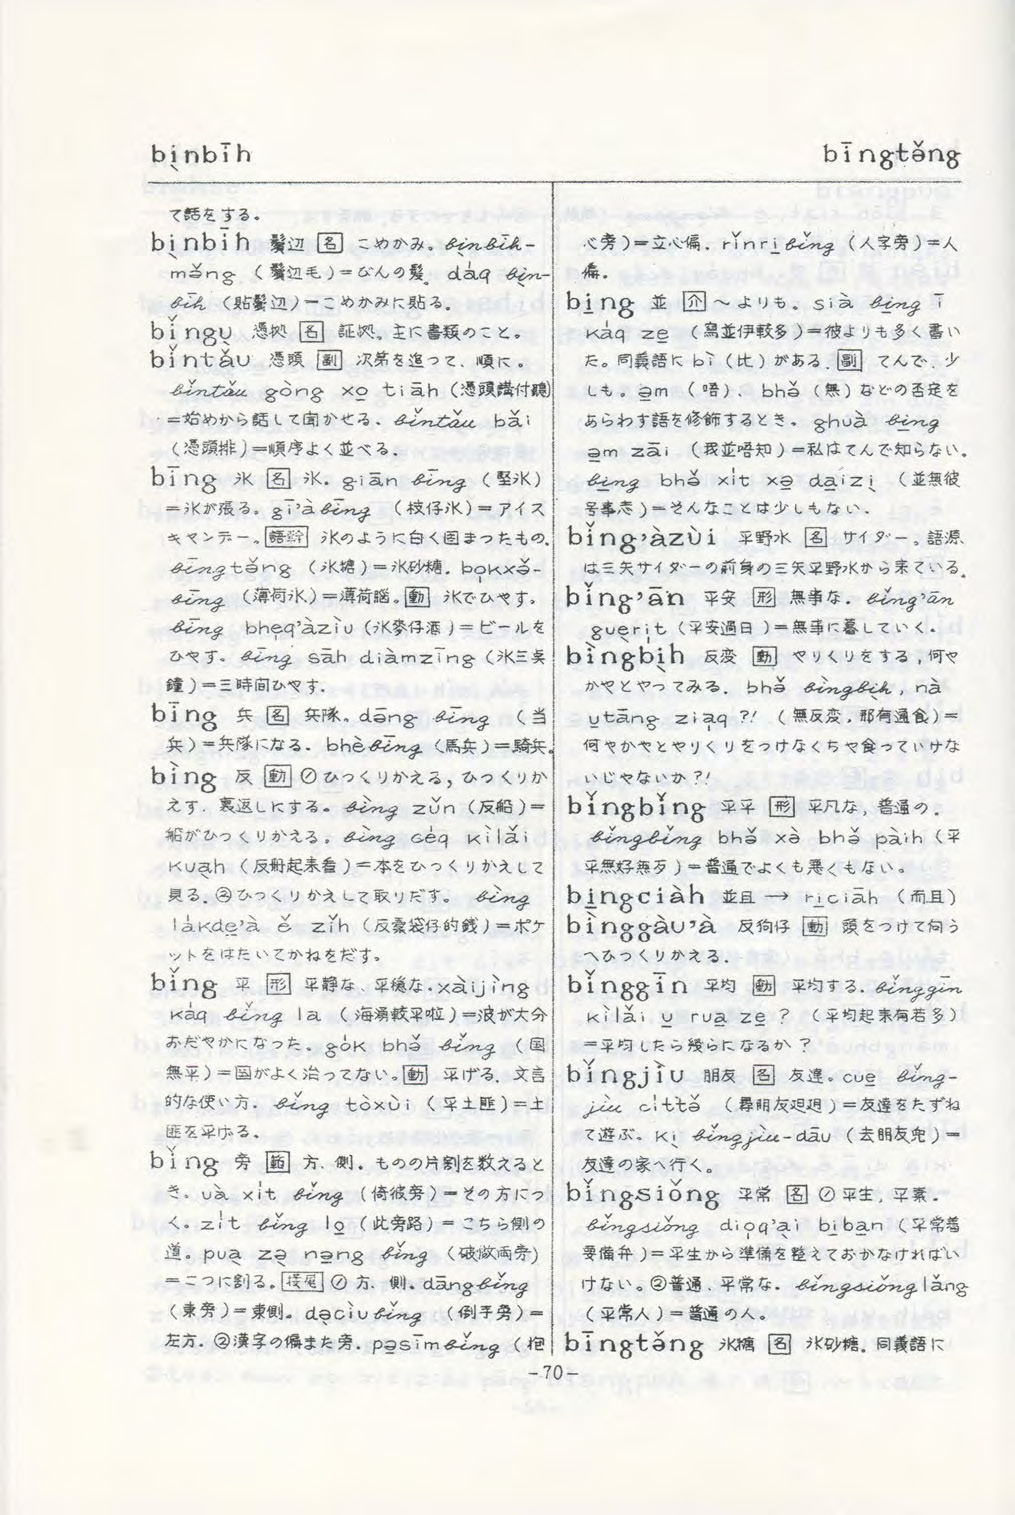 bīnbīh
bīngtǎng
て話をする。
bīnbīh 鬢辺 名 こめかみ。bīnbīh-
mǎng (鬢辺毛)=びんの髪。dàq bīn-
bīh (貼鬢辺)=こめかみに貼る。
憑拠 名 証拠。主に書類のこと。
bǐntǎu 憑頭 副 次第を追って、順に。
bǐntǎu gòng xo tiāh (憑頭講付聴)
=始めから話して聞かせる。bǐntǎu bǎi
(憑頭排)=順序よく並べる。
bīng 氷 名 氷。giān bīng (堅氷)
=氷が張る。gī'à bīng (枝仔氷)=アイス
キャンデー。語幹 氷のように白く固まったもの。
bīngtǎng (氷糖)=氷砂糖。
bīng (薄荷氷)=薄荷脳。動 氷でひやす。
bīng (氷麥仔酒)=ビールを
ひやす。bīng sāh diàmzīng (氷三点
鐘)=三時間ひやす。
bīng 兵 名 兵隊。dāng bīng (当
兵)=兵隊になる。bhè bīng (馬兵)=騎兵。
bìng 反 動 ①ひっくりかえる,ひっくりか
えす,裏返しにする。bìng zǔn (反船)=
船がひっくりかえる。bìng cèq kìlǎi
=本をひっくりかえして
見る。②ひっくりかえして取りだす。bìng
(反橐袋仔的銭)=ポケ
ットをはたいてかねをだす。
bǐng 平 形 平静な、平穏な。xàijìng
kàq bǐng la (海湧較平啦)=波が大分
おだやかになった。gok bhǒ bǐng (国
無平)=国がよく治ってない。動 平げる。文言
的な使い方。bǐng tòxùi (平土匪)=土
匪を平げる。
bǐng 旁 範 方、側。ものの片割を数えると
き。uà xit bǐng (倚彼旁)=その方につ
く。zit bǐng lo (此旁路)=こちら側の
道。bǐng (破做両旁)
=二つに割る。接尾 ①方、側。dāngbǐng
(東旁)=東側。(倒手旁)=
左方。②漢字の偏また旁。(抱
心旁)=立心偏。rǐnribǐng (人字旁)=人
偏。
bing 並 介 ～よりも。sià bing ī
kàq ze (寫並伊較多)=彼よりも多く書い
た。同義語に bì (比) がある。副 てんで、少
しも。m (唔)、bhǒ (無) などの否定を
あらわす語を修飾するとき。ghuà bing
m zāi (我並唔知)=私はてんで知らない。
bing bhǒ xit (並無彼
号事志)=そんなことは少しもない。
bǐng'àzùi 平野水 名 サイダー。語源
は三矢サイダーの前身の三矢平野水から来ている。
bǐng'ān 平安 形 無事な。bǐng'ān
guerit (平安過日)=無事に暮していく。
bìngbih 反変 動 やりくりをする,何や
かやとやってみる。bhǒ bìngbih, nà
utāng ziaq ?! (無反変,那有通食)=
何やかやとやりくりをつけなくちゃ食っていけな
いじゃないか?!
bǐngbǐng 平平 形 平凡な,普通の。
bǐngbǐng bhǒ xò bhǒ pàih (平
平無好無歹)=普通でよくも悪くもない。
bingciàh 並且 → riciāh (而且)
bìnggàu'à 反狗仔 動 頭をつけて向う
へひっくりかえる。
bǐnggīn 平均 動 平均する。bǐnggīn
kìlǎi u rua ze ? (平均起来有若多)
=平均したら幾らになるか?
bǐngjiu 朋友 名 友達。cue bǐng-
jiu (尋朋友𨑨迌)=友達をたずね
て遊ぶ。ki bǐngjiu-dāu (去朋友兜)=
友達の家へ行く。
bǐngsiǒng 平常 名 ①平生,平素。
bǐngsiǒng dioq'ai biban (平常着
要備弁)=平生から準備を整えておかなければい
けない。②普通、平常な。bǐngsiǒng lǎng
(平常人)=普通の人。
bīngtǎng 氷糖 名 氷砂糖。同義語に
-70-